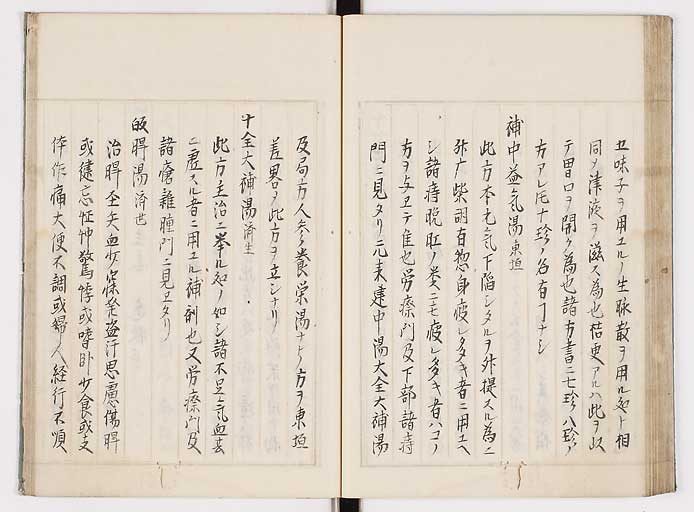 五味子ヲ用エルノ生脉散ヲ用ル如ト相
同ヲ津液ヲ滋ス為也桔更アルハ此ヲ以
テ胃口ヲ開ク為也諸方書ニ七珍八珍ノ
方アレ氏十珍ノ名有丁ナシ
補中益气湯 東垣
此方本元气下陥シタルヲ升提スル為ニ
升广柴胡有惣身疲レ多キ者ニ用エヘ
シ諸病脱肛ノ
モ疲レ多キ者ハコノ
方ヲ与ヱテ佳也労瘵門及下部諸病
門ニ見タリ元来建中湯大全大補湯
及局方人参養栄湯ナトノ方ヲ東垣
差畧ヲ此方ヲ立シナリ
十全大補湯 済生
此方主治ニ挙ル如ノ如シ諸不足气血甚
ニ虚スル者ニ用エル補剤也又労瘵門及
諸瘡雜腫門ニ見ヱタリ
皈脾湯 済世
治脾
失血少寐発盗汗思慮傷脾
或健忘怔忡驚悸或嗜卧少食或支
体作痛大便不調或婦人経行不順